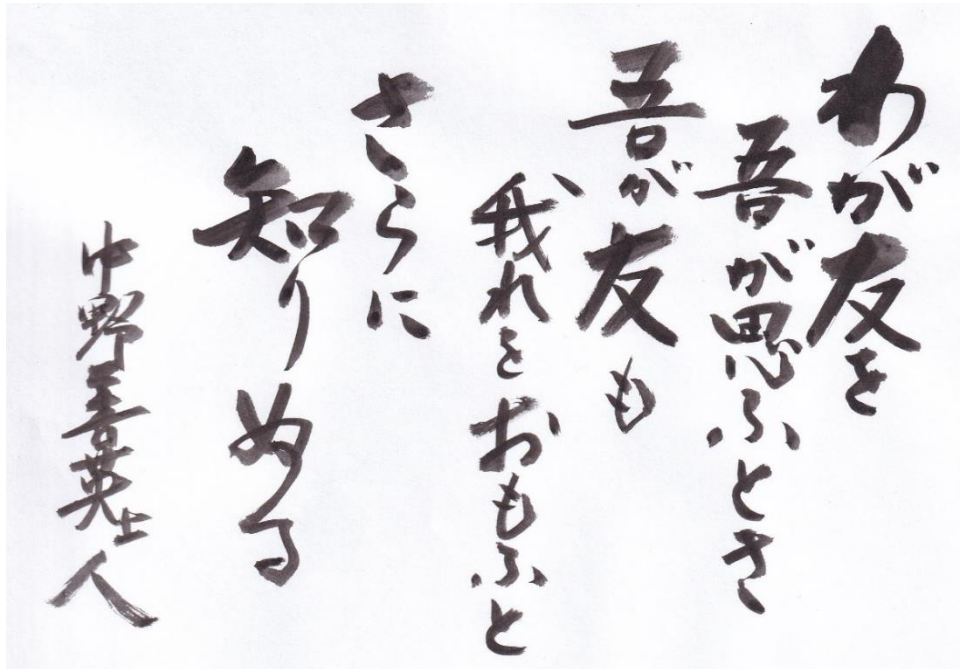 わが友を
吾が思ふとき
吾が友も
我れをおもふと
さらに
知りぬる
中野善英上人